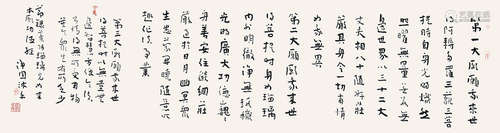 第一大願願我來世
得阿耨多羅三藐三菩
提時自身光明熾然
照曜無量無數無
邊世界以三十二大
丈夫相八十隨好莊
嚴其身令一切有情
如我無異
第二大願願我來世
得菩提時身如琉璃
內外明徹淨無瑕穢
光明廣大功德巍巍
身善安住焰網莊
嚴過於日月幽冥眾
生悉蒙開曉隨意所
趣作諸事業
第三大願願我來世
得菩提時以無量無
邊智慧方便令諸
有情皆得無盡所受用物
莫令眾生有所乏少
藥師琉璃光如來
本願功德經